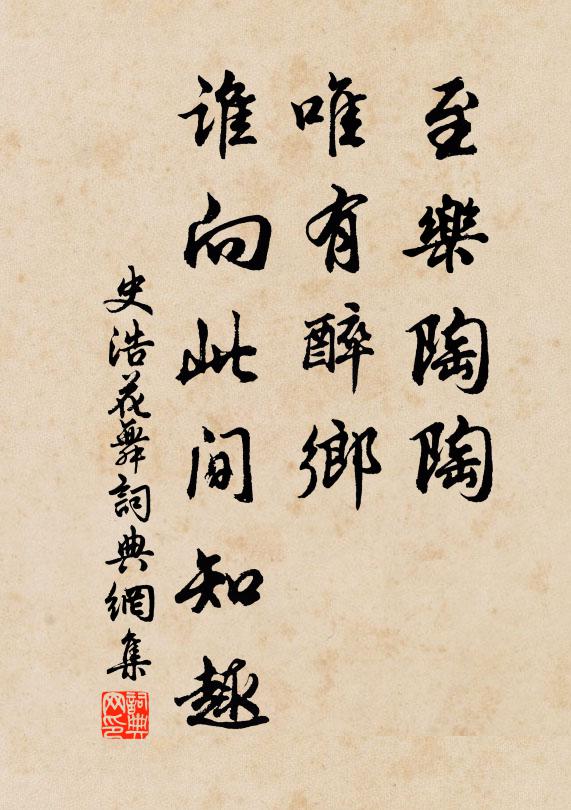 至樂陶陶
唯有醉鄉
誰向此間知趣
史浩花舞詞典網集
詞典
网印